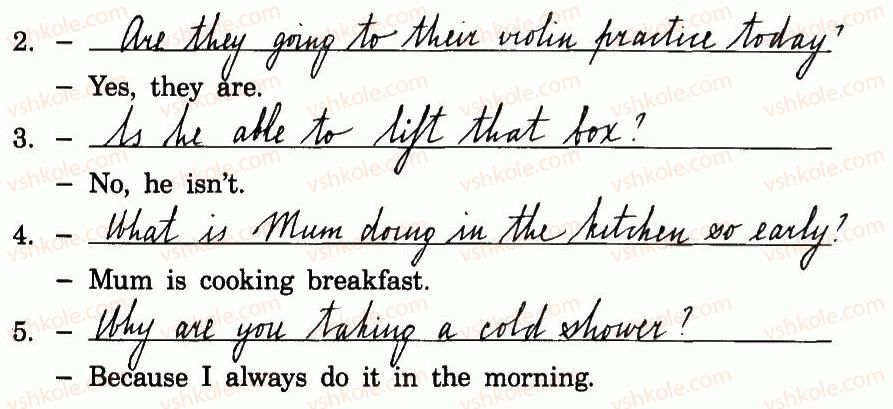 2. – Are they going to their violin practice today?
– Yes, they are.
3. – Is he able to lift that box?
– No, he isn't.
4. – What is Mum doing in the kitchen so early?
– Mum is cooking breakfast.
5. – Why are you taking a cold shower?
– Because I always do it in the morning.